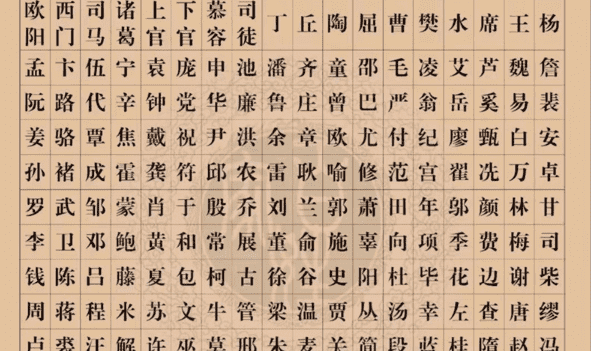 欧阳 西门 司马 诸葛 上官 下官 慕容 司徒 丁 丘 陶 屈 曹 樊 水 席 王 杨
孟 卞 伍 宁 袁 庞 申 池 潘 齐 童 邵 毛 凌 艾 芦 魏 詹
阮 路 代 辛 钟 党 华 廉 鲁 庄 曾 巴 严 翁 岳 奚 易 裴
姜 骆 覃 焦 戴 祝 尹 洪 余 章 欧 尤 付 纪 廖 甄 白 安
孙 褚 成 霍 龚 符 邱 农 雷 耿 喻 修 范 宫 翟 冼 万 卓
罗 武 邹 蒙 肖 于 殷 乔 刘 兰 郭 萧 田 年 邬 颜 林 甘
李 卫 邓 鲍 黄 和 常 展 董 俞 施 辜 向 项 季 费 梅 司
钱 陈 吕 藤 夏 包 柯 古 徐 谷 史 阳 杜 毕 花 边 谢 柴
周 蒋 程 米 苏 文 牛 管 梁 温 贾 丛 汤 幸 左 查 唐 缪
卢 裘 汪 解 许 巫 莫 邢 朱 麦 关 简 段 蓝 桂 隋 赵 冯